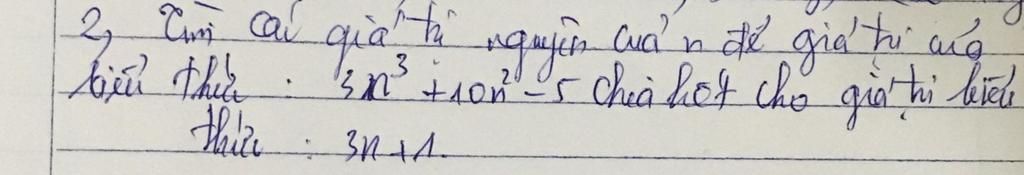 2, Tìm các giá trị nguyên của n để giá trị của
biểu thức : 3n³ + 10n² - 5 chia hết cho giá trị biểu
thức : 3n + 1.